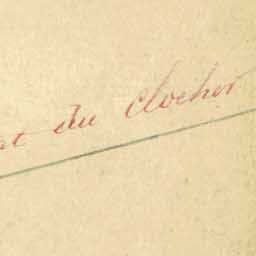 et du clocher